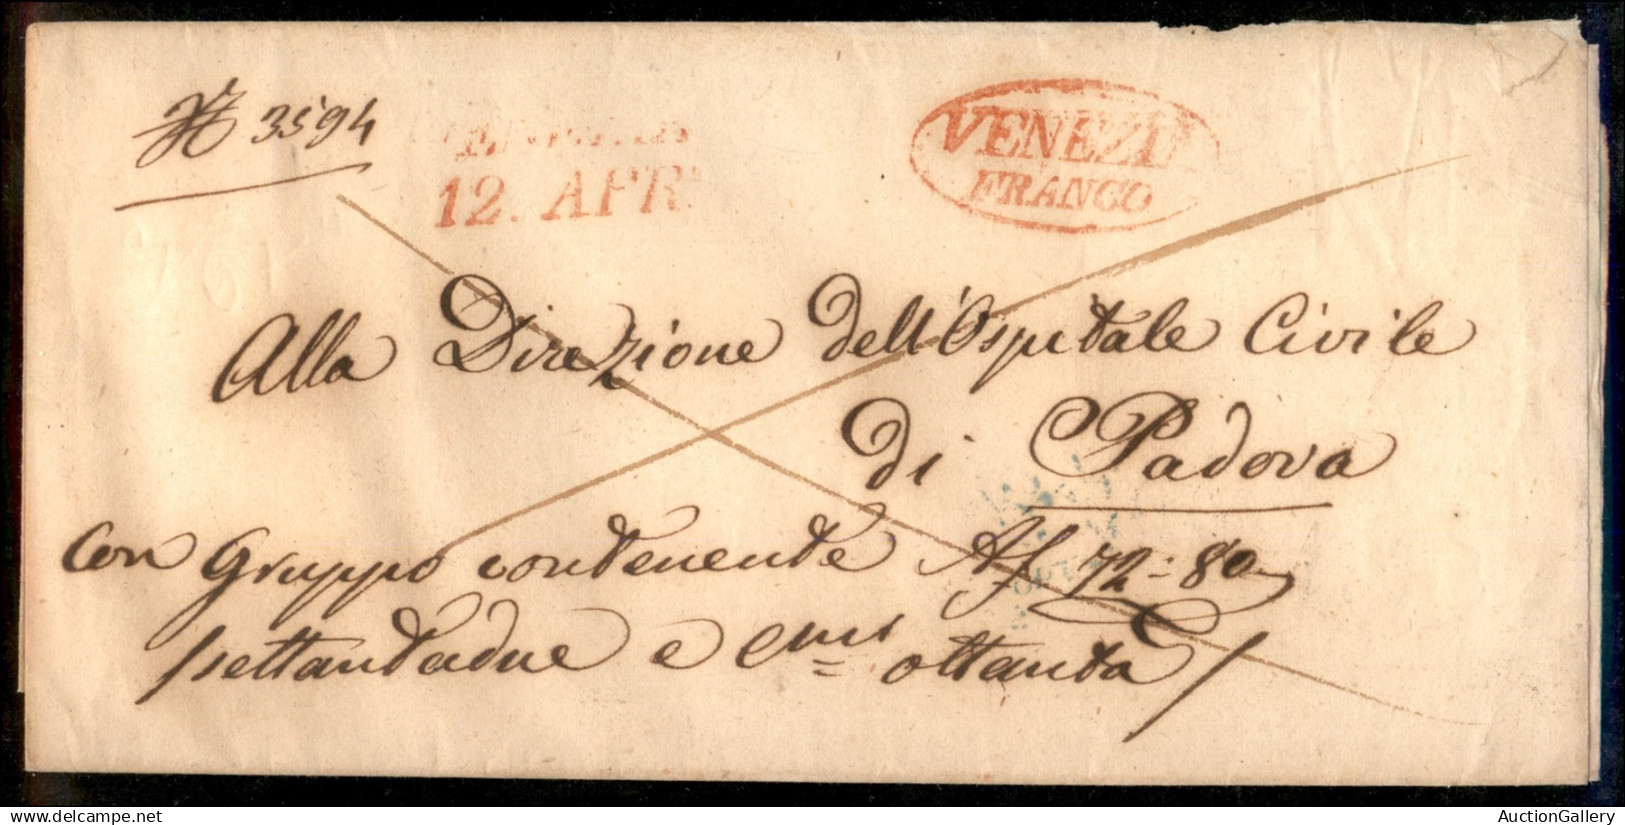 N 3594
12. APR
VENEZI
FRANCO
Alla Direzione dell'Ospitale Civile
di Padova
con Gruppo contenente Af 72:80
settantadue e cms ottanta
AuctionGallery